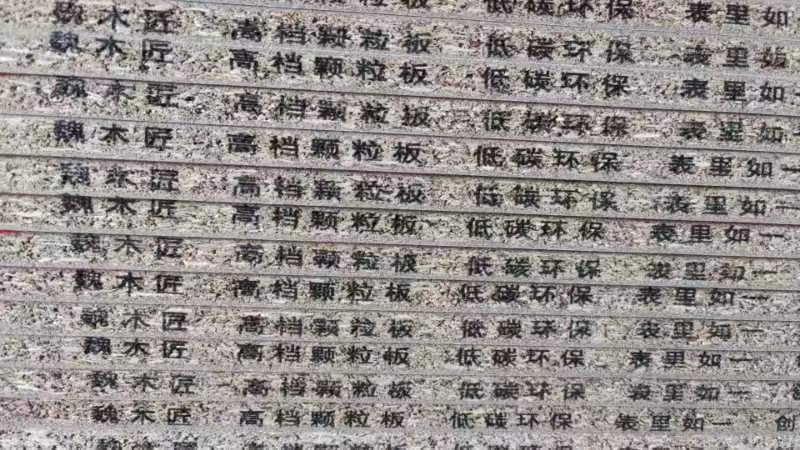 低碳环保 表里如
魏木匠 高档颗粒板 低碳环保 表里如
魏木匠 高档颗粒板 低碳环保 表里如
魏木匠 高档颗粒板 低碳环保 表里如
魏木匠 高档颗粒板 低碳环保 表里如一
魏木匠 高档颗粒板 低碳环保 表里如一
魏木匠 高档颗粒板 低碳环保 表里如一
魏木匠 高档颗粒板 低碳环保 表里如一
魏木匠 高档颗粒板 低碳环保 表里如一
魏木匠 高档颗粒板 低碳环保 表里如一
魏木匠 高档颗粒板 低碳环保 表里如一
魏木匠 高档颗粒板 低碳环保 表里如一
魏木匠 高档颗粒板 低碳环保 表里如一 创